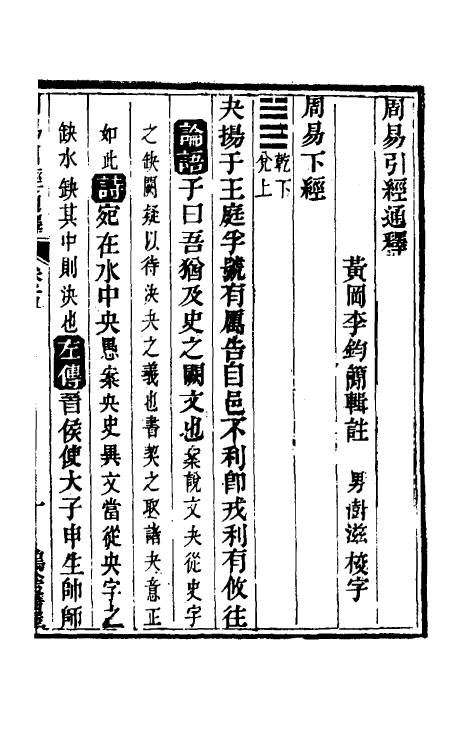 周易引經通釋
黃岡李鈞簡輯註 男澍滋校字
周易下經
乾下
兌上
夬揚于王庭孚號有厲告自邑不利卽戎利有攸往
論語子曰吾猶及史之闕文也案說文夬從史字
之缺闕疑以待決夬之義也書契之取諸夬意正
如此詩宛在水中央愚案央史異文當從央字之
缺水缺其中則決也左傳晉侯使大子申生帥師